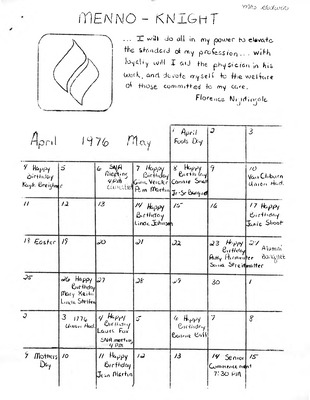 Mrs
MENNO - KNIGHT
... I will do all in my power to elevate
the standard of my profession... with
loyalty will I aid the physician in his
work, and devote myself to the welfare
of those committed to my care.
Florence Nightingale
April 1976 May
1 April
Fools Day
2
3
4 Happy
Birthday
5
6 SNA
Meeting
4 PM
7 Happy
Birthday
Pam Martin
8 Happy
Birthday
Connie
Jr-Sr Banquet
9
10
Van Cliburn
Union Aud.
11
12
13
14 Happy
Birthday
Linda Johnson
15
16
17 Happy
Birthday
Janie
18 Easter
19
20
21
22
23 Happy
Birthday
24 Alumni
Banquet
25
26 Happy
Birthday
Mary
Linda
27
28
29
30
1
2
3 1776
Union Aud.
4 Happy
Birthday
Laurel
SNA meeting
4 PM
5
6 Happy
Birthday
7
8
9 Mothers
Day
10
11 Happy
Birthday
Jean Martin
12
13
14 Senior
Commencement
7:30 PM
15